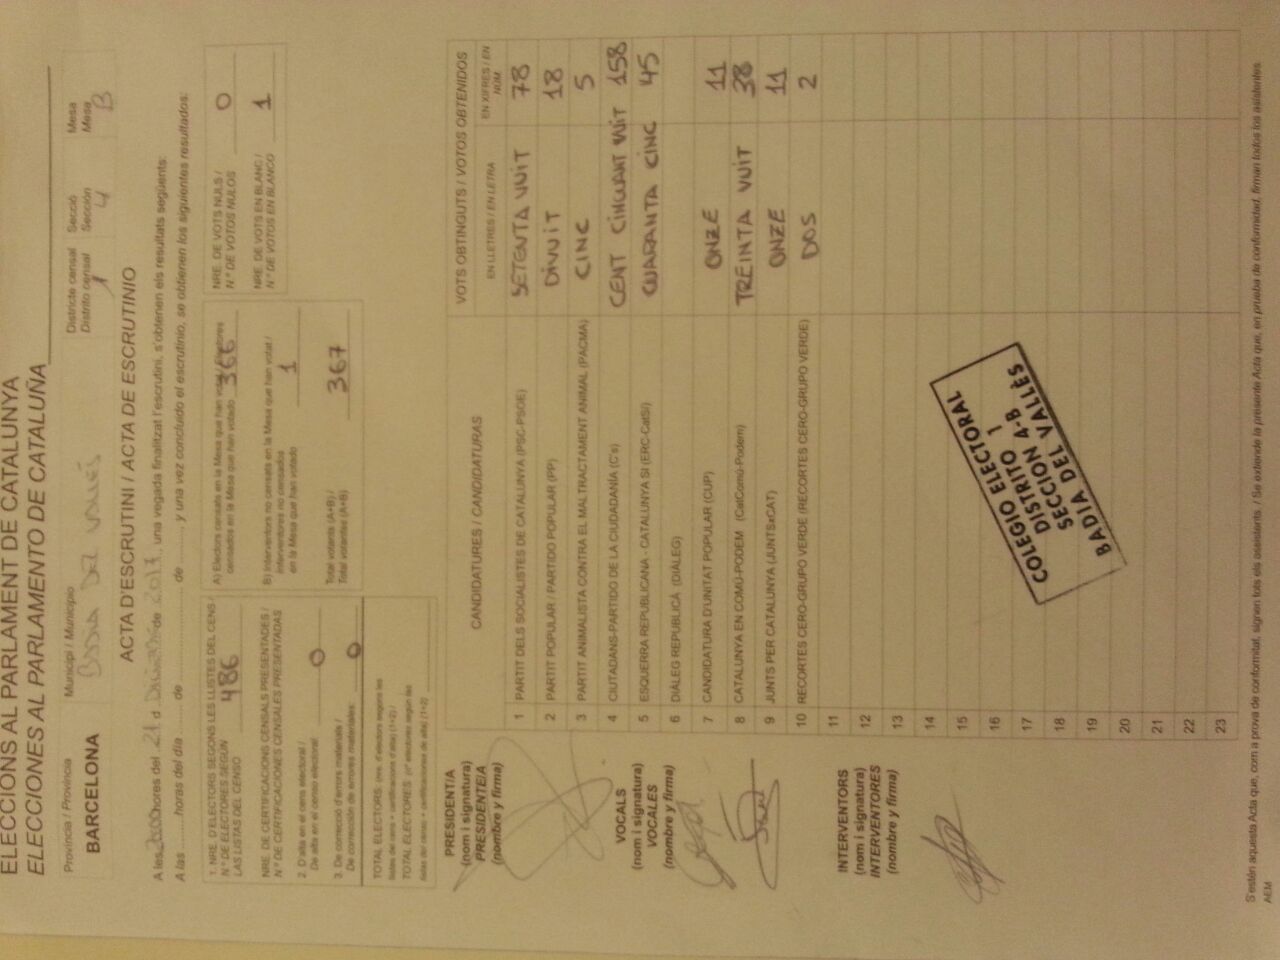 ELECCIONS AL PARLAMENT DE CATALUNYA
ELECCIONES AL PARLAMENTO DE CATALUÑA
Província / Provincia
BARCELONA
Municipi / Municipio
BADIA DEL VALLÈS
Districte censal
Distrito censal
1
Secció
Sección
4
Mesa
Mesa
B
ACTA D'ESCRUTINI / ACTA DE ESCRUTINIO
A les 20:00 hores del 21 d Diciembre de 2017, una vegada finalitzat l'escrutini, s'obtenen els resultats següents:
A las horas del día de de , y una vez concluido el escrutinio, se obtienen los siguientes resultados:
1. NRE. D'ELECTORS SEGONS LES LLISTES DEL CENS /
N.º DE ELECTORES SEGÚN
LAS LISTAS DEL CENSO 486
NRE. DE CERTIFICACIONS CENSALS PRESENTADES /
N.º DE CERTIFICACIONES CENSALES PRESENTADAS
2. D'alta en el cens electoral /
De alta en el censo electoral 0
3. De correcció d'errors materials /
De corrección de errores materiales: 0
TOTAL ELECTORS: (nre. d'electors segons les
llistes del cens + certificacions d'alta) (1+2) /
TOTAL ELECTORES: (nº electores según las
listas del censo + certificaciones de alta) (1+2)
A) Electors censats en la Mesa que han votat / Electores
censados en la Mesa que han votado 366
B) Interventors no censats en la Mesa que han votat /
Interventores no censados
en la Mesa que han votado 1
Total votants (A+B) /
Total votantes (A+B) 367
NRE. DE VOTS NULS /
N.º DE VOTOS NULOS 0
NRE. DE VOTS EN BLANC /
N.º DE VOTOS EN BLANCO 1
CANDIDATURES / CANDIDATURAS
VOTS OBTINGUTS / VOTOS OBTENIDOS
EN LLETRES / EN LETRA
EN XIFRES / EN NÚM.
1 PARTIT DELS SOCIALISTES DE CATALUNYA (PSC-PSOE) SETENTA VUIT 78
2 PARTIT POPULAR / PARTIDO POPULAR (PP) DIVUIT 18
3 PARTIT ANIMALISTA CONTRA EL MALTRACTAMENT ANIMAL (PACMA) CINC 5
4 CIUTADANS-PARTIDO DE LA CIUDADANÍA (C's) CENT CINQUANT VUIT 158
5 ESQUERRA REPUBLICANA - CATALUNYA SÍ (ERC-CatSí) QUARANTA CINC 45
6 DIÀLEG REPUBLICÀ (DIÀLEG)
7 CANDIDATURA D'UNITAT POPULAR (CUP) ONZE 11
8 CATALUNYA EN COMÚ-PODEM (CatComú-Podem) TREINTA VUIT 38
9 JUNTS PER CATALUNYA (JUNTSxCAT) ONZE 11
10 RECORTES CERO-GRUPO VERDE (RECORTES CERO-GRUPO VERDE) DOS 2
11
12
13
14
15
16
17
18
19
20
21
22
23
PRESIDENT/A
(nom i signatura)
PRESIDENTE/A
(nombre y firma)
VOCALS
(nom i signatura)
VOCALES
(nombre y firma)
INTERVENTORS
(nom i signatura)
INTERVENTORES
(nombre y firma)
COLEGIO ELECTORAL
DISTRITO 1
SECCION 4-B
BADIA DEL VALLÈS
S'estén aquesta Acta que, com a prova de conformitat, signen tots els assistents. / Se extiende la presente Acta que, en prueba de conformidad, firman todos los asistentes.
AEM